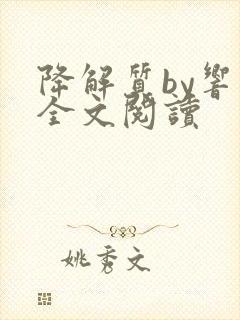 降解質by響
全文閱讀
姚秀文